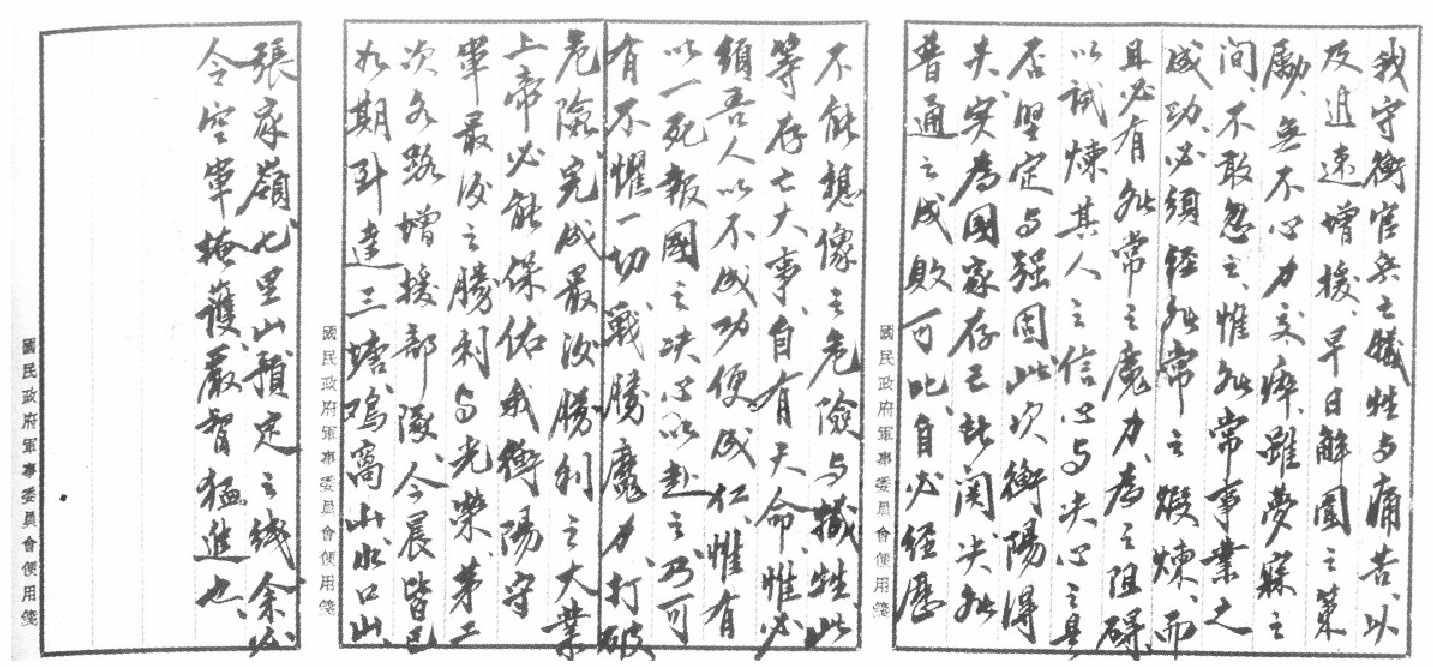 我守衡官兵之犧牲与痛苦、以
及迅速增援、早日解圍之策
勵、無不心力交瘁、雖夢寐之
間、不敢忽之、惟非常事業之
成功、必須經非常之煅煉、而
且必有非常之魔力、為之阻礙、
以試煉其人之信心与决心之是
否堅定与强固、此次衡陽得
失、实為國家存亡攸関、决非
普通之成敗可比、自必经歷
國民政府軍事委員會使用箋
不能想像之危險与犧牲、此
等存亡大事、自有天命、惟必
須吾人以不成功便成仁、惟有
以一死報國之决心以赴之、乃可
有不懼一切、戰勝魔力、打破
危險、完成最後勝利之大業
上帝必能保佑我衡陽守
軍最後之勝利与光榮、第二
次各路增援部隊、今晨皆已
如期到達三塘鸡窩山、水口山、
國民政府軍事委員會使用箋
張家嶺、七里山預定之綫、余必
令空軍掩護、嚴督猛進也、
國民政府軍事委員會使用箋